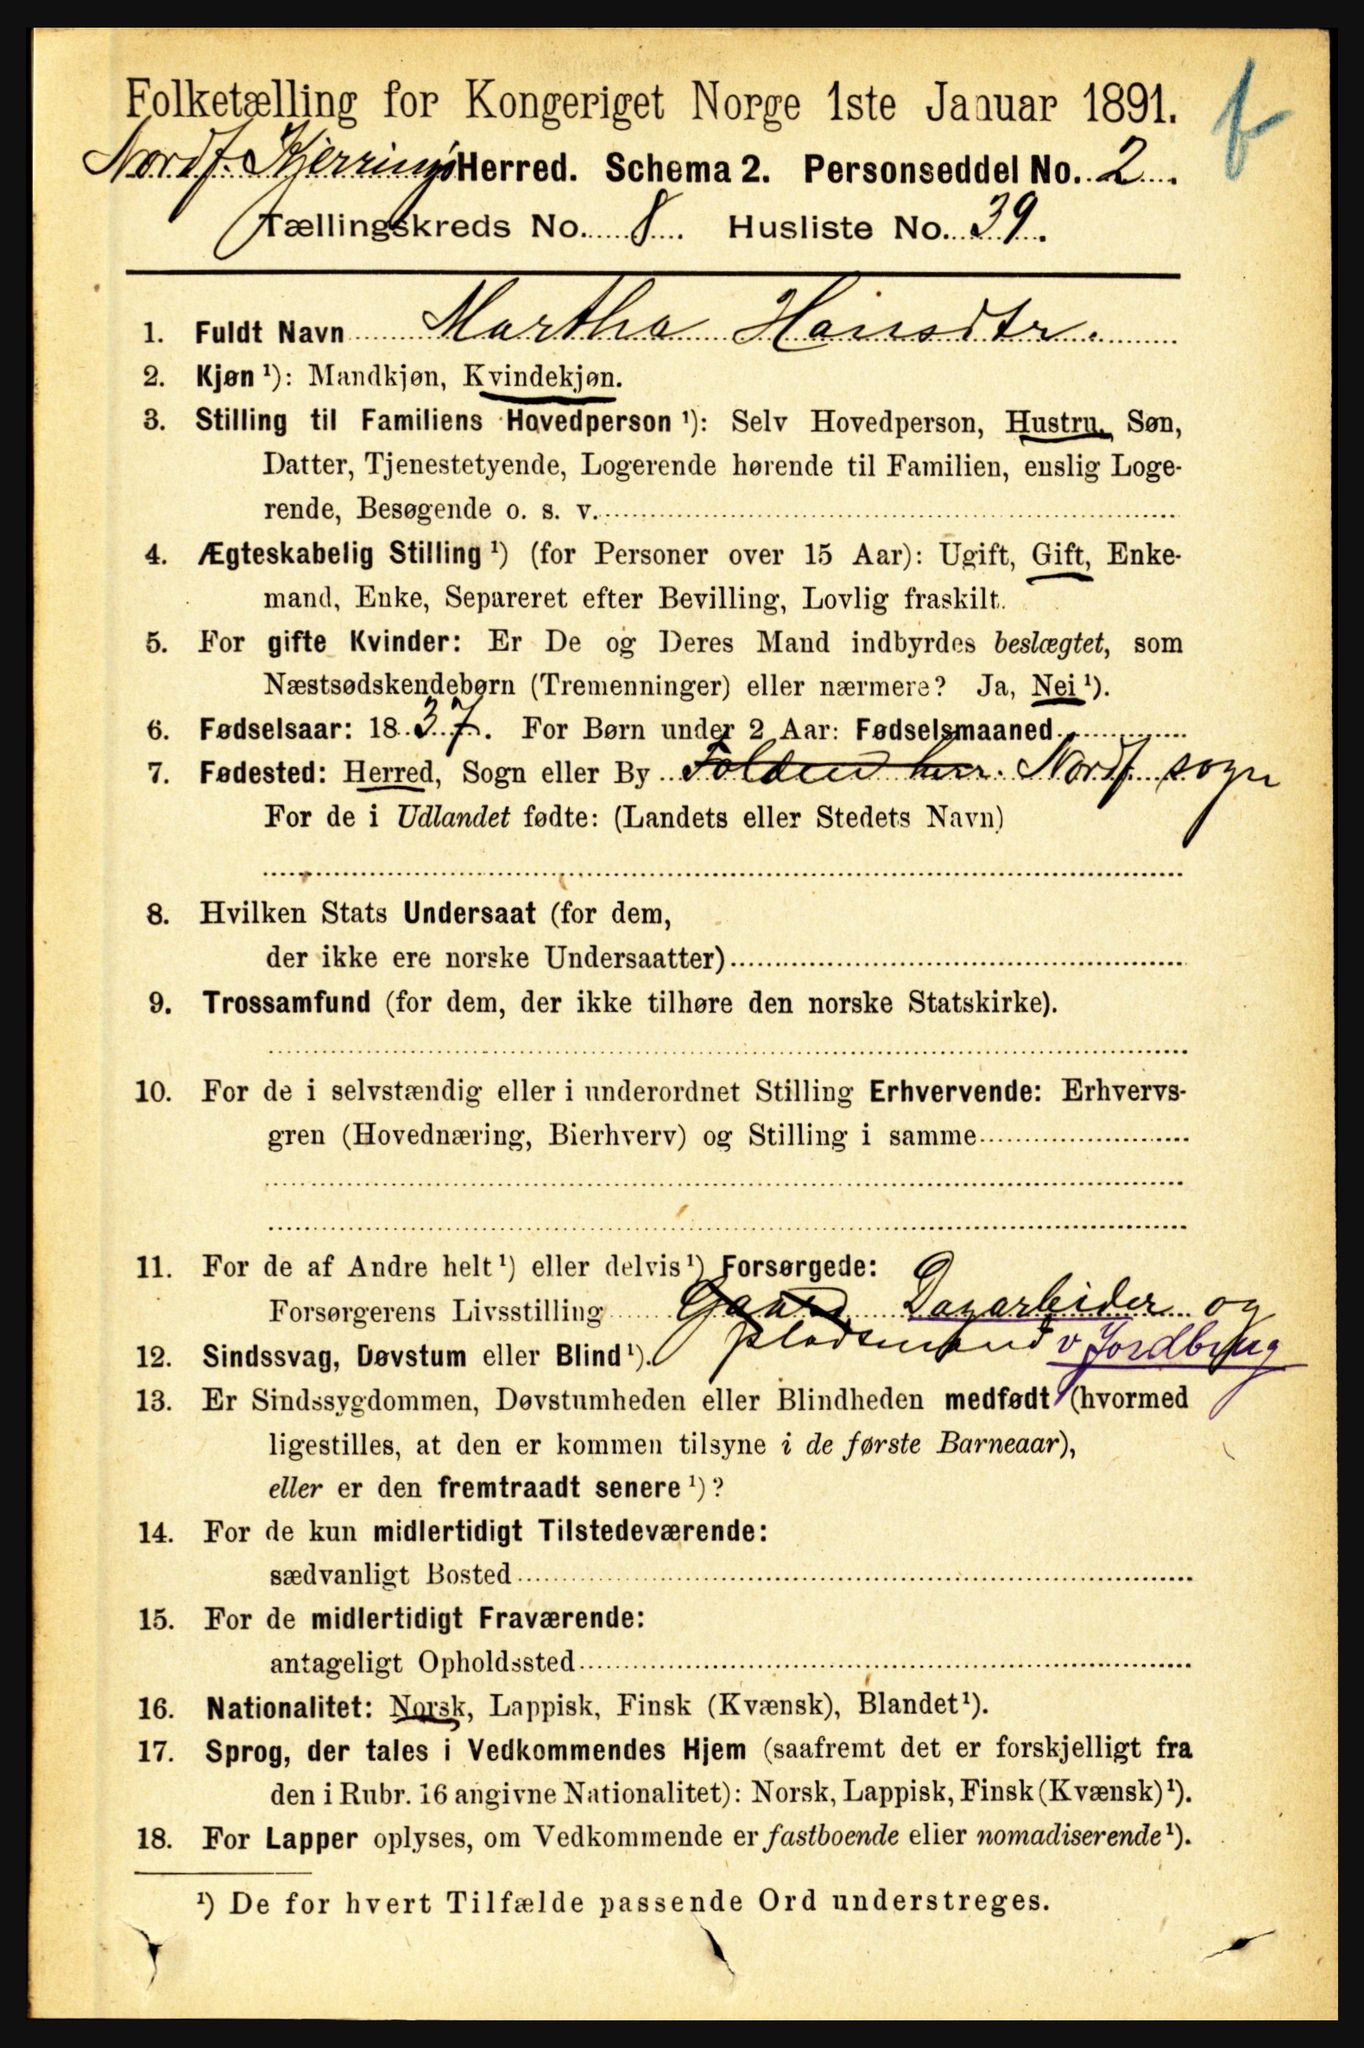 Folketælling for Kongeriget Norge 1ste Januar 1891.
f
Nordf. Kjerringø Herred. Schema 2. Personseddel No. 2.
Tællingskreds No. 8. Husliste No. 39.
1. Fuldt Navn Martha Hansdtr.
2. Kjøn ¹): Mandkjøn, Kvindekjøn.
3. Stilling til Familiens Hovedperson ¹): Selv Hovedperson, Hustru, Søn,
Datter, Tjenestetyende, Logerende hørende til Familien, enslig Loge-
rende, Besøgende o. s. v.
4. Ægteskabelig Stilling ¹) (for Personer over 15 Aar): Ugift, Gift, Enke-
mand, Enke, Separeret efter Bevilling, Lovlig fraskilt.
5. For gifte Kvinder: Er De og Deres Mand indbyrdes beslægtet, som
Næstsødskendebørn (Tremenninger) eller nærmere? Ja, Nei ¹).
6. Fødselsaar: 1837. For Børn under 2 Aar: Fødselsmaaned
7. Fødested: Herred, Sogn eller By Folden herr. Nordf. sogn
For de i Udlandet fødte: (Landets eller Stedets Navn)
8. Hvilken Stats Undersaat (for dem,
der ikke ere norske Undersaatter)
9. Trossamfund (for dem, der ikke tilhøre den norske Statskirke).
10. For de i selvstændig eller i underordnet Stilling Erhvervende: Erhvervs-
gren (Hovednæring, Bierhverv) og Stilling i samme
11. For de af Andre helt ¹) eller delvis ¹) Forsørgede:
Forsørgerens Livsstilling Gaard Dagarbeider og
pladsmand v Jordbrug
12. Sindssvag, Døvstum eller Blind ¹).
13. Er Sindssygdommen, Døvstumheden eller Blindheden medfødt (hvormed
ligestilles, at den er kommen tilsyne i de første Barneaar),
eller er den fremtraadt senere ¹)?
14. For de kun midlertidigt Tilstedeværende:
sædvanligt Bosted
15. For de midlertidigt Fraværende:
antageligt Opholdssted
16. Nationalitet: Norsk, Lappisk, Finsk (Kvænsk), Blandet ¹).
17. Sprog, der tales i Vedkommendes Hjem (saafremt det er forskjelligt fra
den i Rubr. 16 angivne Nationalitet): Norsk, Lappisk, Finsk (Kvænsk) ¹).
18. For Lapper oplyses, om Vedkommende er fastboende eller nomadiserende ¹).
¹) De for hvert Tilfælde passende Ord understreges.